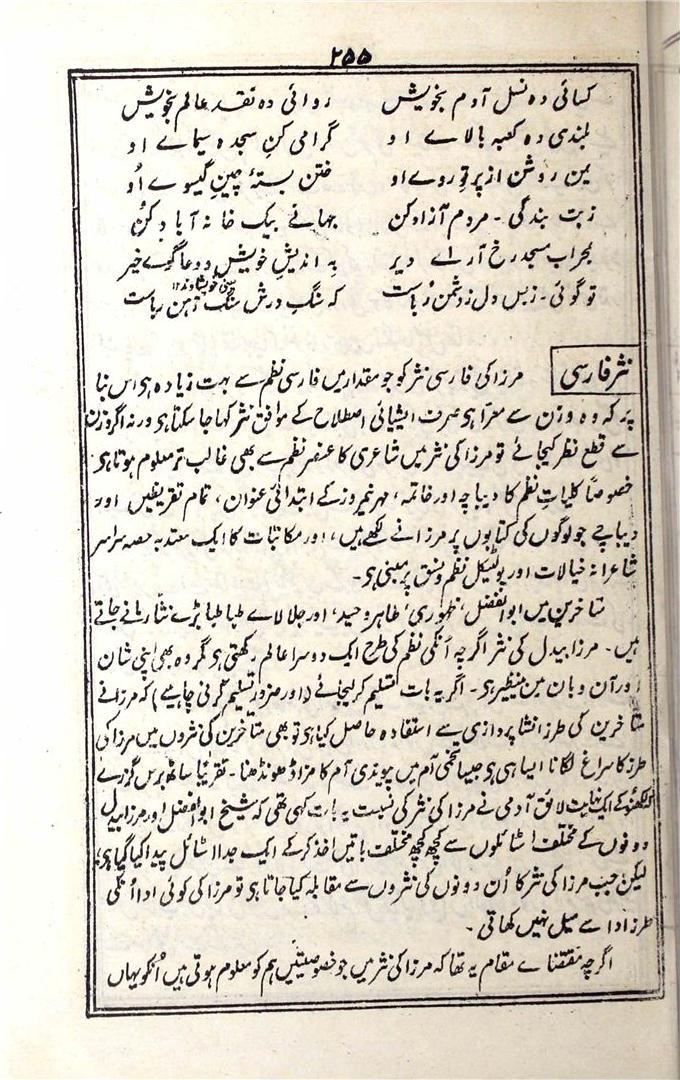 ۲۵۵
کسائی دہ نسل آدم بخویش روائی دہ نقد عالم بخویش
بلندی دہ کعبہ بالاے او گرامی کنِ سجدہ سیماے او
یمن روشن از پرتوِ روے او ختن بستۂ چینِ گیسوے اُو
زبت بندگی ۔ مردم آزاد کن جہانے بیک خانہ آباد کن
بمحراب مسجد رخ آراے دیر بہ اندیشِ خویش و دعا گوے خیر
تو گوئی ۔ زبس دل ز دشمن رُباست کہ سنگِ درش سنگِ آہن رباست
نثر فارسی مرزا کی فارسی نثر کو جو مقدار میں فارسی نظم سے بہت زیادہ ہی اس بنا
پر کہ وہ وزن سے معرّا ہی صرف ایشیائی اصطلاح کے موافق نثر کہا جا سکتا ہی ورنہ اگر وزن
سے قطع نظر کیجائے تو مرزا کی نثر میں شاعری کا عنصر نظم سے بھی غالب تر معلوم ہوتا ہی
خصوصاً کلیاتِ نظم کا دیباچہ اور خاتمہ، مہر نیمروز کے ابتدائی عنوان، تمام تقریظیں اور
دیباچے جو لوگوں کی کتابوں پر مرزا نے لکھے ہیں، اور مکاتبات کا ایک معتدبہ حصہ سراسر
شاعرانہ خیالات اور پولٹیکل نظم و نسق پر مبنی ہی۔
متاخرین میں ابو الفضل، ظہوری، طاہر وحید، اور جلالاے طباطبا بڑے نثّار مانے جاتے
ہیں ۔ مرزا بیدل کی نثر اگرچہ اُنکی نظم کی طرح ایک دوسرا عالم رکھتی ہی مگر وہ بھی اپنی شان
اور آن و بان میں بینظیر ہی ۔ اگر یہ بات تسلیم کر لیجائے (اور ضرور تسلیم کرنی چاہیے) کہ مرزا نے
متاخرین کی طرز انشا پردازی سے استفادہ حاصل کیا ہی تو بھی متاخرین کی نثروں میں مرزا کی
طرز کا سراغ لگانا ایسا ہی ہی جیسا تخمی آم میں پیوندی آم کا مزا ڈھونڈھنا ۔ تقریباً ساٹھ برس گزرے
لکھنؤ کے ایک نہایت لائق آدمی نے مرزا کی نثر کی نسبت یہ بات کہی تھی کہ شیخ ابو الفضل اور مرزا بیدل
دونوں کے مختلف اسٹائلوں سے کچھ کچھ مختلف باتیں اخذ کر کے ایک جدا اسٹائل پیدا کیا گیا ہی،
لیکن جب مرزا کی نثر کا اُن دونوں کی نثروں سے مقابلہ کیا جاتا ہی تو مرزا کی کوئی ادا اُنکی
طرز ادا سے میل نہیں کھاتی ۔
اگرچہ مقتضاے مقام یہ تھا کہ مرزا کی نثر میں جو خصوصیتیں ہم کو معلوم ہوتی ہیں اُنکو یہاں